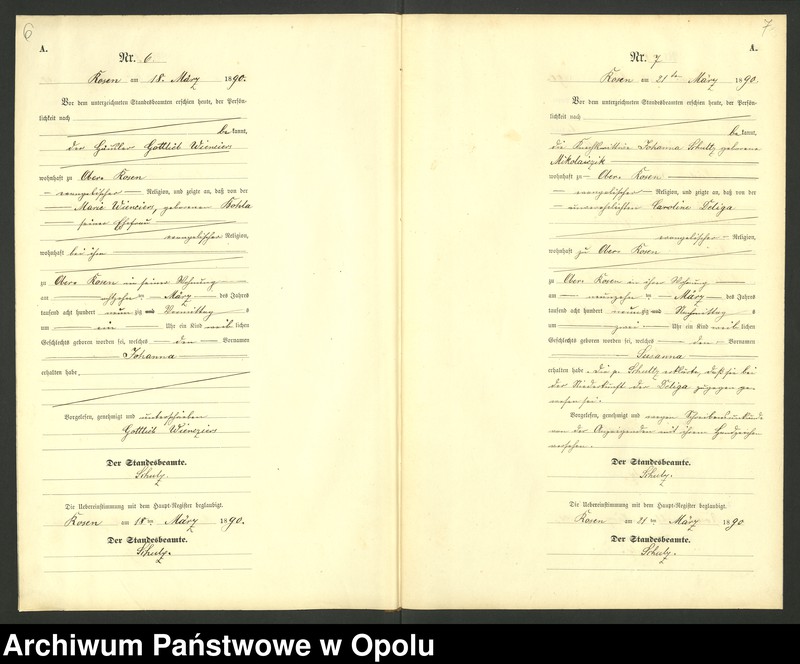 6
A.
Nr. 6.
Rosen am 18. März 1890.
Vor dem unterzeichneten Standesbeamten erschien heute, der Persön-
lichkeit nach
bekannt,
der Häusler Gottlieb
wohnhaft zu Ober- Rosen
evangelischer Religion, und zeigte an, daß von der
Marie, geborenen
seiner Ehefrau
evangelischer Religion,
wohnhaft bei ihm
zu Ober- Rosen in seiner Wohnung
am achtzehn ten März des Jahres
tausend acht hundert neunzig Vormittag s
um ein Uhr ein Kind weiblichen
Geschlechts geboren worden sei, welches den Vornamen
Johanna
erhalten habe.
Vorgelesen, genehmigt und unterschrieben
Gottlieb
Der Standesbeamte.
Schulz.
Die Uebereinstimmung mit dem Haupt-Register beglaubigt.
Rosen am 18 ten März 1890.
Der Standesbeamte.
Schulz.
7.
A.
Nr. 7
Rosen am 21ten März 1890.
Vor dem unterzeichneten Standesbeamten erschien heute, der Persön-
lichkeit nach
bekannt,
die Johanna Schultz geborene
Mikolaiczik
wohnhaft zu Ober- Rosen
evangelischer Religion, und zeigte an, daß von der
unverehelichten Caroline Deliga
evangelischer Religion,
wohnhaft zu Ober- Rosen
zu Ober- Rosen in ihrer Wohnung
am neunzehn ten März des Jahres
tausend acht hundert neunzig Nachmittag s
um zwei Uhr ein Kind weiblichen
Geschlechts geboren worden sei, welches den Vornamen
Susanna
erhalten habe. Die p. Schultz erklärte, daß sie bei
der Niederkunft der Deliga zugegen ge-
wesen sei.
Vorgelesen, genehmigt und wegen Schreibensunkunde
von der Anzeigenden mit ihrem Handzeichen
versehen.
Der Standesbeamte.
Schulz.
Die Uebereinstimmung mit dem Haupt-Register beglaubigt.
Rosen am 21 ten März 1890
Der Standesbeamte.
Schulz.
Archiwum Państwowe w Opolu